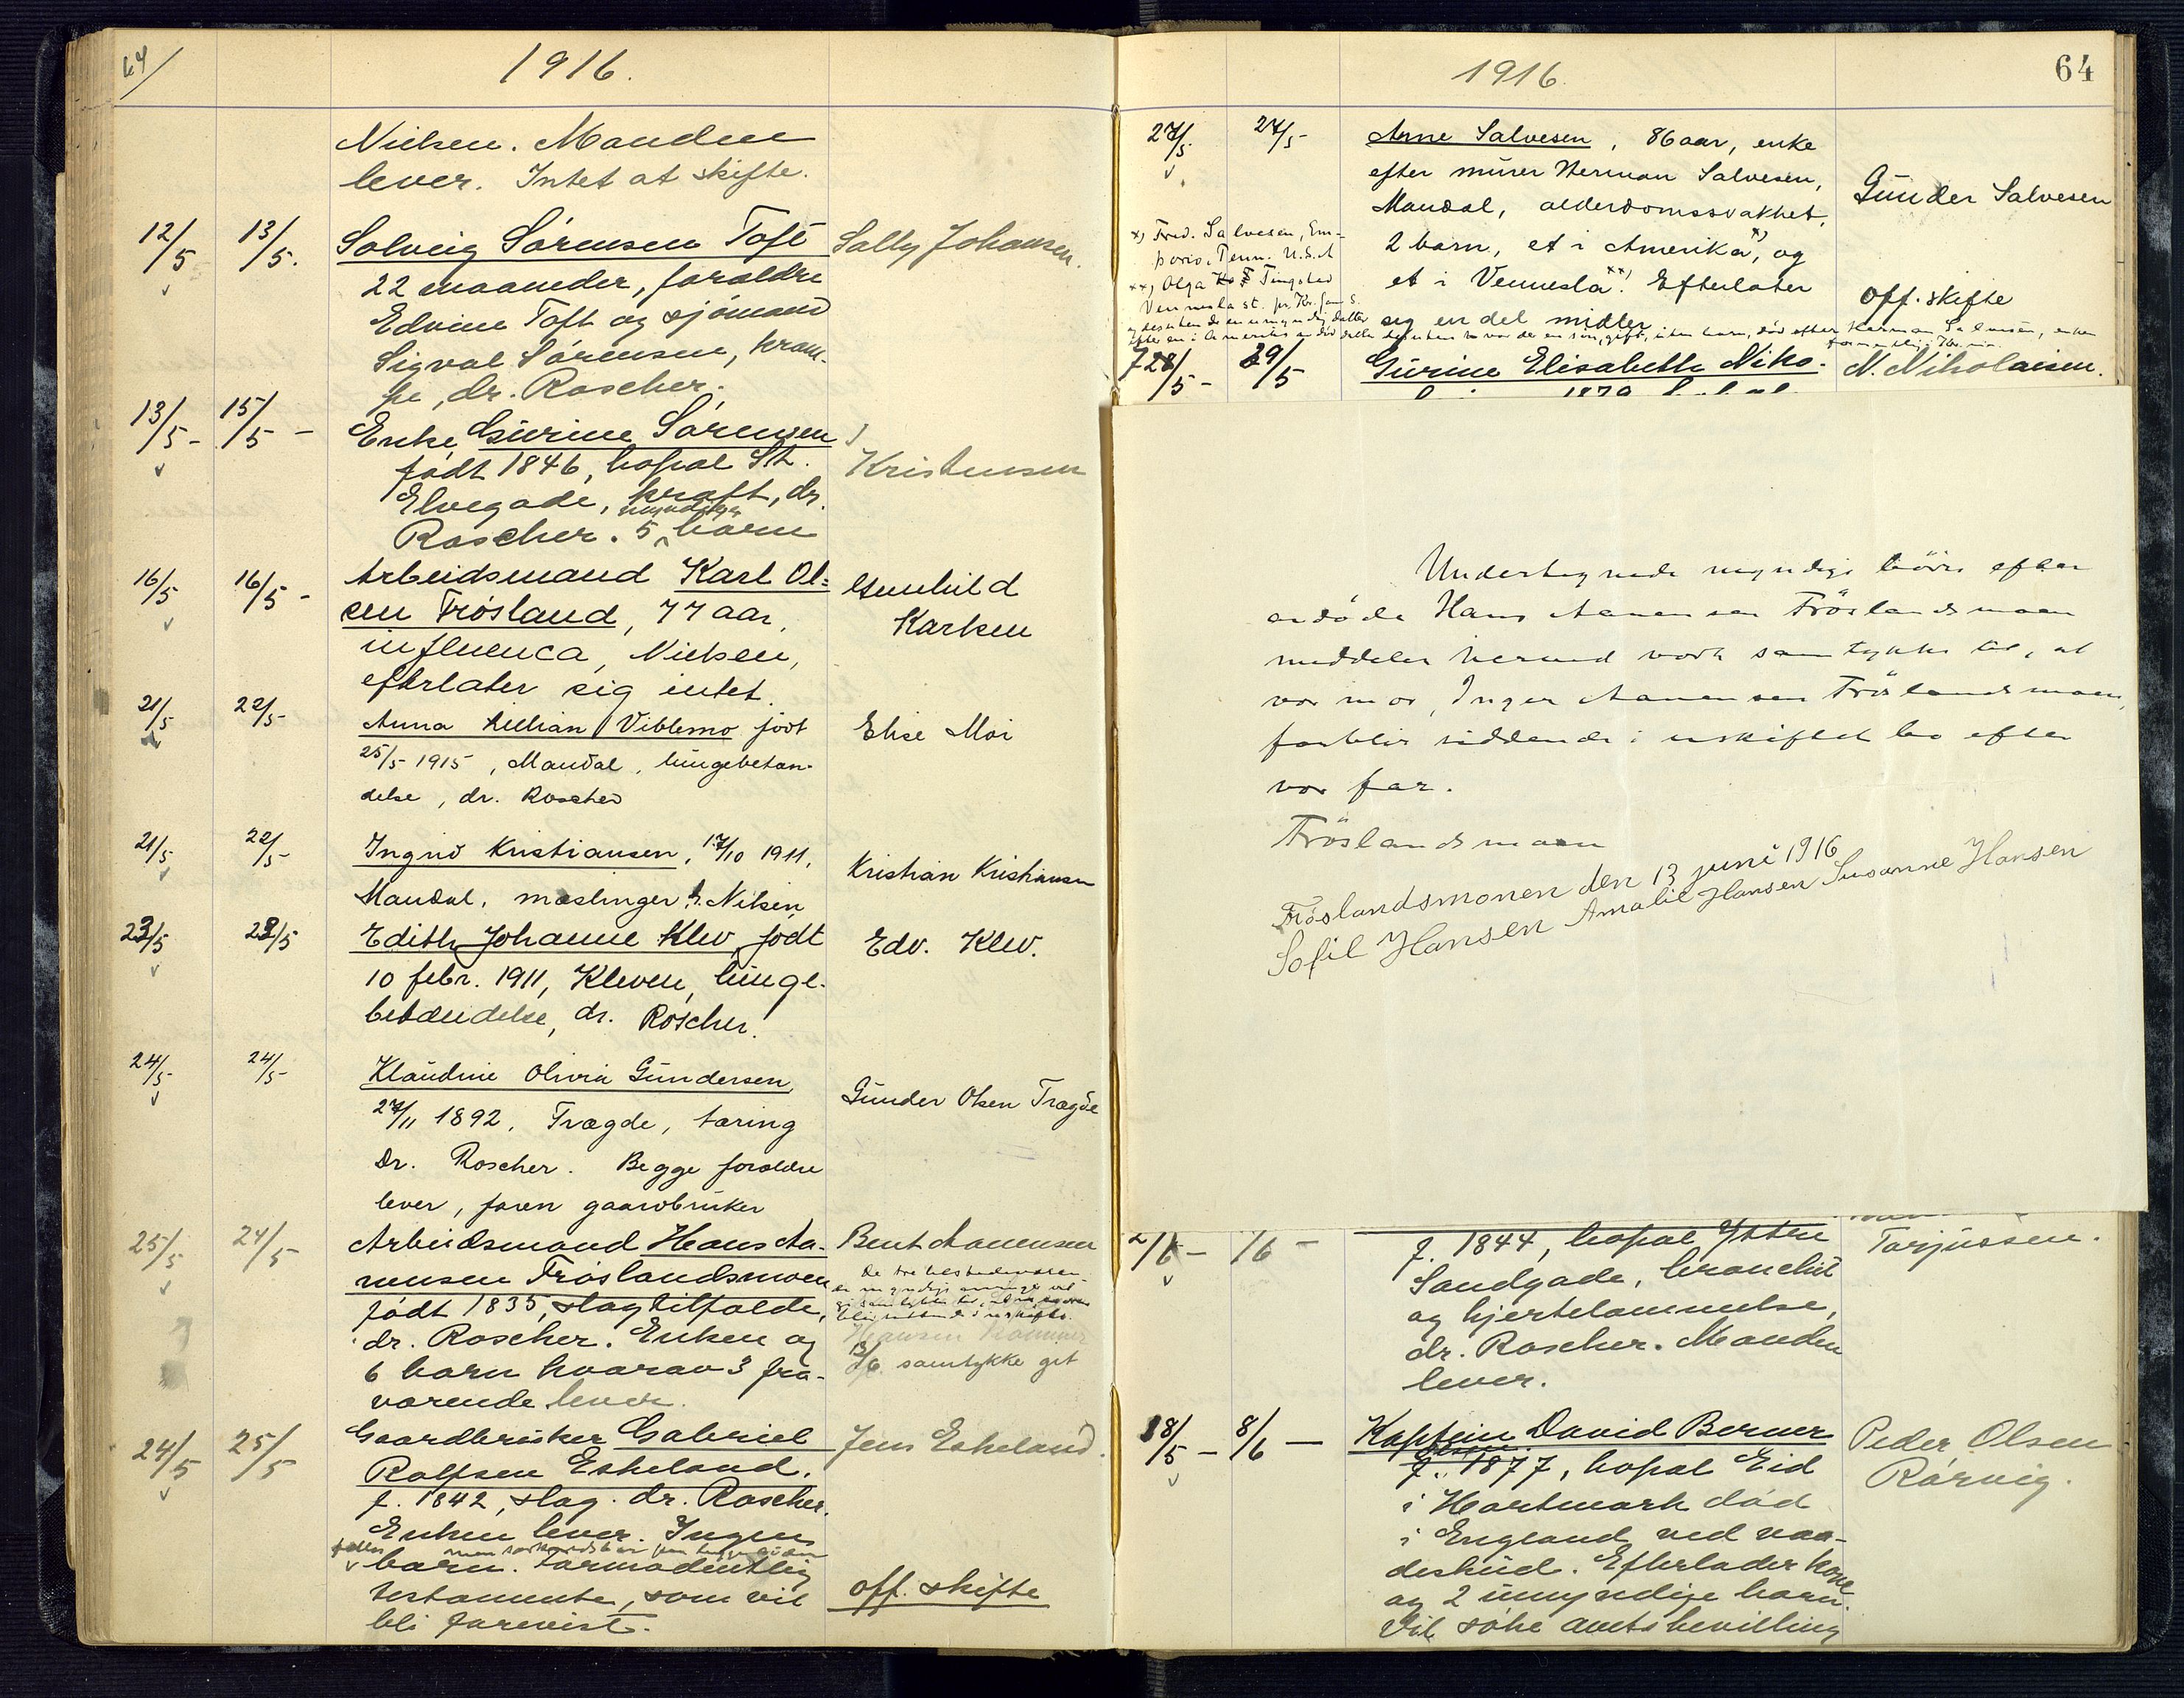 64/
1916.
Nielsen. Manden
lever. Intet at skifte.
12/5 13/5. Solveig Sörensen Toft Sally Johansen.
22 maaneder, foræeldre
Edvine Toft og sjömand
Sigval Sörensen, kram-
pe, dr. Roscher.
13/5 - 15/5 - Enke Gurine Sörensen
født 1846, bopæl St. Kristensen
Elvegade, kraft, dr.
Roscher. 5 myndige barn
16/5 16/5 - Arbeidsmand Karl Ol= Gunhild
sen Frösland, 77 aar, Karlsen
influenca, Nielsen,
efterlater sig intet.
21/5 22/5 Anna Lillian Viblemo født Elise Moi
25/5 1915, Mandal, lungebetæn-
delse, dr. Roscher
21/5 22/5 Ingrid Kristiansen, 17/10 1911, Kristian Kristiansen
Mandal, mæslinger, Nilsen
23/5 23/5 Edith Johanne Klev, født Edv. Klev.
10 febr. 1911, Kleven, lunge-
betændelse, dr. Roscher.
24/5 24/5 Klaudine Olivia Gundersen, Gunder Olsen Tragde
27/11 1892. Tragde, tæring
Dr. Roscher. Begge forældre
lever, faren gaardbruker
25/5 24/5 Arbeidsmand Hans Aa- Bent Aanensen
nensen Fröslandsmoen
født 1835, slagtilfælde,
dr. Roscher. Enken og
6 barn hvorav 3 fra- 13/6 samtykke git
værende lever.
24/5 25/5 Gaardbruker Gabriel Jens Eskeland.
Rolfsen Eskeland,
f. 1842, slag. dr. Roscher.
Enken lever. Ingen
fælles barn. Formodentlig
testamente, som vil off. skifte
bli forevist.
1916. 64
27/5 27/5 Anne Salvesen, 86 aar, enke
efter murer Herman Salvesen, Gunder Salvesen
Mandal, alderdomssvakhet,
2 barn, et i Amerika x), og
et i Vennesla xx). Efterlater off. skifte
sig en del midler
x) Fred. Salvesen, Em-
porio, Penn. U.S.A
xx) Olga Tingstad
Vennesla st. pr. Kr.sand S.
28/5 - 29/5 Gurine Elisabeth Niko- N. Nikolaisen.
Undertegnede myndige börn efter
avdöde Hans Aanensen Fröslandsmoen
meddeler herved vort samtykke til, at
vor mor, Inger Aanensen Fröslandsmoen,
forblir siddende i uskiftet bo efter
vor far.
Fröslandsmoen
Fröslandsmonen den 13 juni 1916
Sofie Hansen Amalie Hansen Susanne Hansen
2/6 - 7/6 - f. 1844, bopæl Ystre Torjussen.
Sandgade, bronchit
og hjertelammelse,
dr. Roscher. Manden
lever.
18/5 - 8/6 - Kaptein David Berner Peder Olsen
f. 1877, bopæl Eid Rörvig.
i Hartmark död
i England ved vaa-
deskud. Efterlader kone
og 2 umyndige barn.
Vil söke amtsbevilling